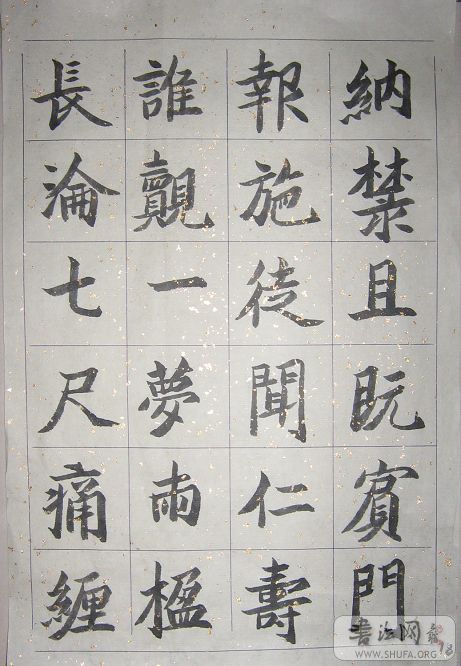 納禁且阮賓門
報施徒聞仁壽
誰覿一夢兩楹
長淪七尺痛纏
书法网
WWW.SHUFA.ORG